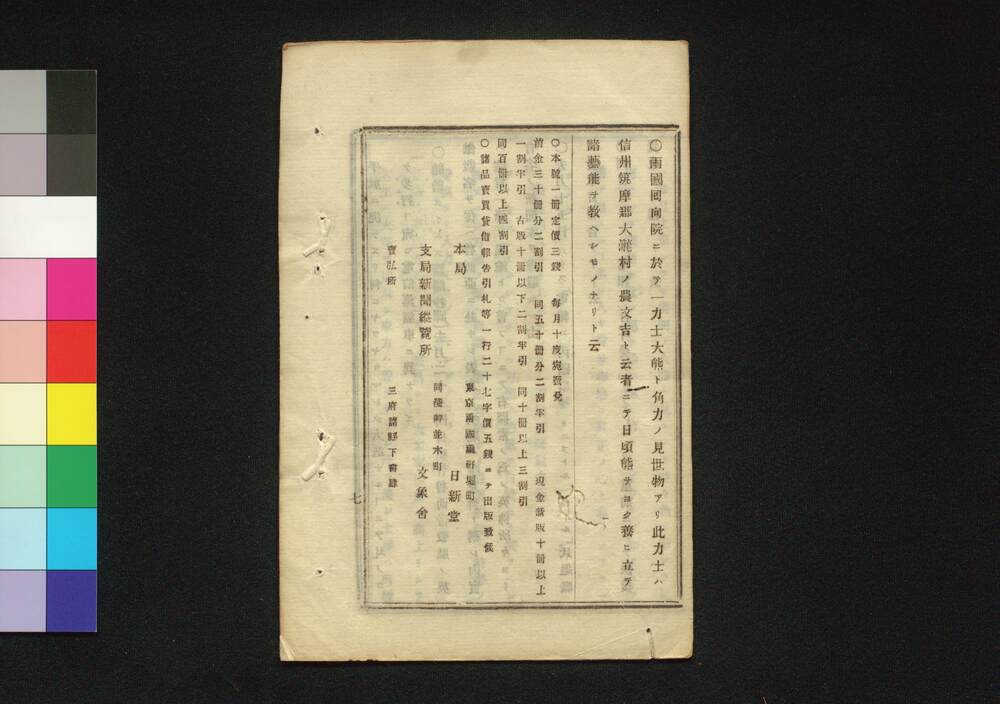 ○兩國囘向院ニ於テ一力士大熊ト角力ノ見世物アリ此力士ハ
信州筑摩郡大瀧村ノ農文吉ト云者ニテ日頃熊ヲヨク養ヒ立テ
諸藝能ヲ教ヘシモノナリト云
○本號一冊定價三錢 毎月十度宛發兌
前金三十冊分二割引 同五十冊分二割半引 現金新版十冊以上
一割半引 古版十冊以下二割半引 同十冊以上三割引
同百冊以上四割引
○諸品賣買貸借報告引札等一行二十七字價五錢ニテ出版致候
本局 東京兩國 町 日新堂
支局新聞縱覽所 同淺草並木町 文象舍
賣弘所 三府諸縣下書肆
七